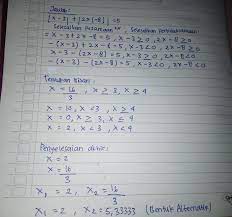 Jawab:
|x-3| + |2x-8| = 5
Selesaikan Persamaan, Selesaikan Pertidaksamaan:
= x-3+2x-8=5, x-3≥0, 2x-8≥0
-(x-3)+2x-8=5, x-3<0, 2x-8≥0
x-3-(2x-8)=5, x-3≥0, 2x-8<0
-(x-3)-(2x-8)=5, x-3<0, 2x-8<0
x = 16/3, x ≥ 3, x ≥ 4
x = 10, x < 3, x ≥ 4
x = 0, x ≥ 3, x < 4
x = 2, x < 3, x < 4
Penyelesaian akhir:
x = 2
x = 16/3
x₁ = 2, x₂ = 16/3
x₁ = 2, x₂ = 5,33333 (Bentuk Alternatif)